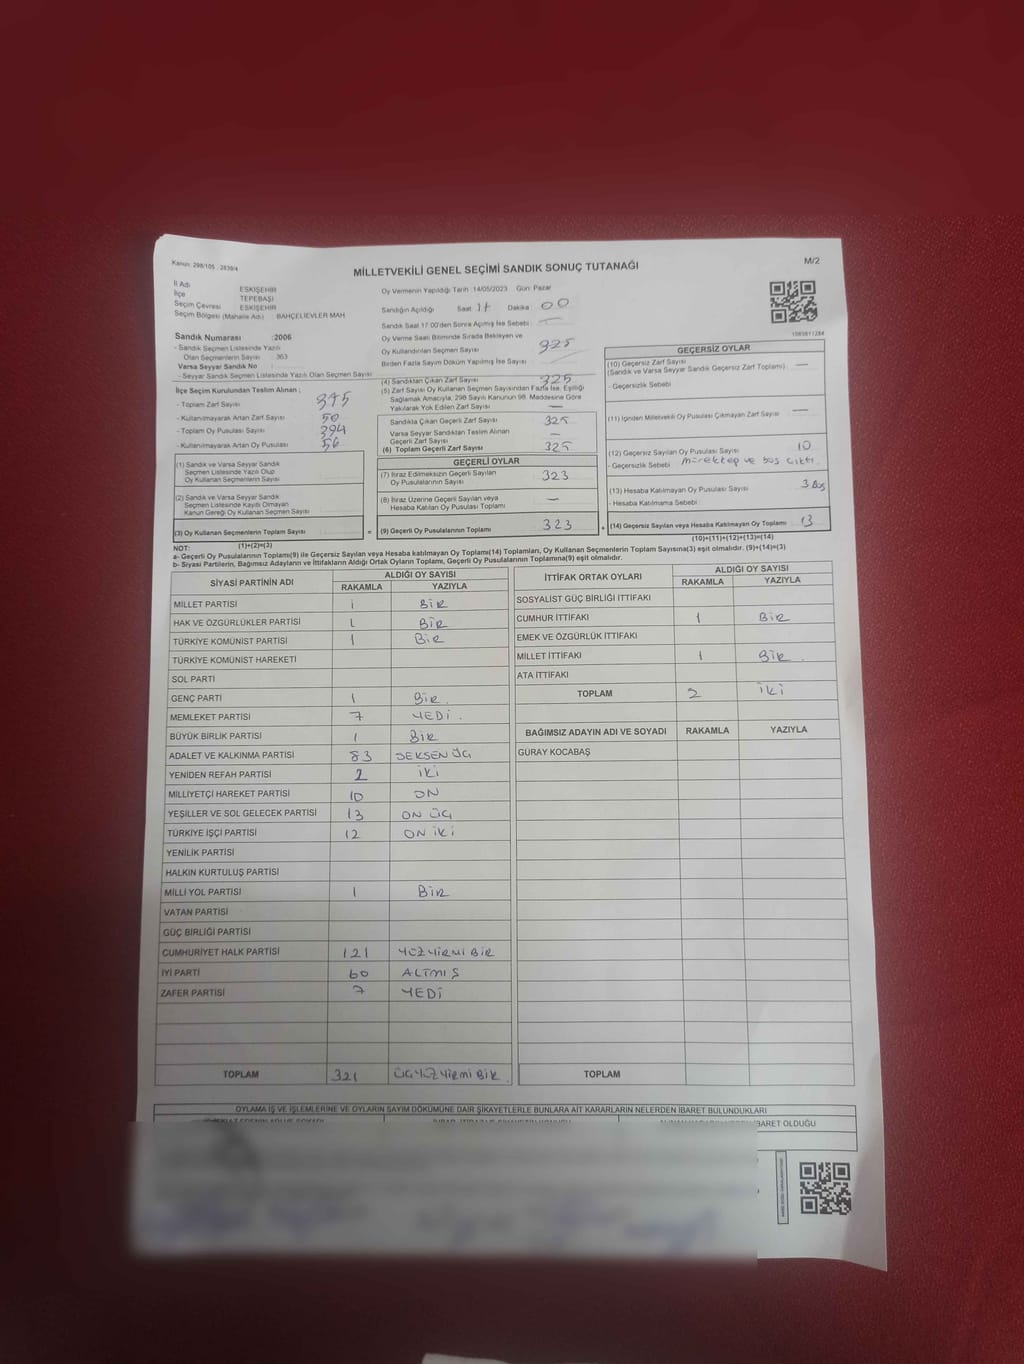 Kanun: 298/105 , 2839/4
MİLLETVEKİLİ GENEL SEÇİMİ SANDIK SONUÇ TUTANAĞI
M/2
İl Adı ESKİŞEHİR
İlçe TEPEBAŞI
Seçim Çevresi ESKİŞEHİR
Seçim Bölgesi (Mahalle Adı) BAHÇELİEVLER MAH
Sandık Numarası :2006
- Sandık Seçmen Listesinde Yazılı
Olan Seçmenlerin Sayısı : 363
Varsa Seyyar Sandık No
- Seyyar Sandık Seçmen Listesinde Yazılı Olan Seçmen Sayısı
Oy Vermenin Yapıldığı Tarih :14/05/2023 Gün: Pazar
Sandığın Açıldığı Saat 17 Dakika : 00
Sandık Saat 17:00'den Sonra Açılmış İse Sebebi : —
Oy Verme Saati Bitiminde Sırada Bekleyen ve
Oy Kullandırılan Seçmen Sayısı
Birden Fazla Sayım Döküm Yapılmış İse Sayısı
İlçe Seçim Kurulundan Teslim Alınan ;
- Toplam Zarf Sayısı
- Kullanılmayarak Artan Zarf Sayısı 50
- Toplam Oy Pusulası Sayısı 394
- Kullanılmayarak Artan Oy Pusulası 56
(1) Sandık ve Varsa Seyyar Sandık
Seçmen Listesinde Yazılı Olup
Oy Kullanan Seçmenlerin Sayısı
(2) Sandık ve Varsa Seyyar Sandık
Seçmen Listesinde Kayıtlı Olmayan
Kanun Gereği Oy Kullanan Seçmen Sayısı
(3) Oy Kullanan Seçmenlerin Toplam Sayısı
(1)+(2)=(3)
(4) Sandıktan Çıkan Zarf Sayısı 325
(5) Zarf Sayısı Oy Kullanan Seçmen Sayısından Fazla İse, Eşitliği
Sağlamak Amacıyla, 298 Sayılı Kanunun 98. Maddesine Göre
Yakılarak Yok Edilen Zarf Sayısı —
Sandıkta Çıkan Geçerli Zarf Sayısı 325
Varsa Seyyar Sandıktan Teslim Alınan
Geçerli Zarf Sayısı —
(6) Toplam Geçerli Zarf Sayısı 325
GEÇERLİ OYLAR
(7) İtiraz Edilmeksizin Geçerli Sayılan
Oy Pusulalarının Sayısı 323
(8) İtiraz Üzerine Geçerli Sayılan veya
Hesaba Katılan Oy Pusulası Toplamı —
= (9) Geçerli Oy Pusulalarının Toplamı 323
1585811284
GEÇERSİZ OYLAR
(10) Geçersiz Zarf Sayısı
(Sandık ve Varsa Seyyar Sandık Geçersiz Zarf Toplamı) —
- Geçersizlik Sebebi
(11) İçinden Milletvekili Oy Pusulası Çıkmayan Zarf Sayısı —
(12) Geçersiz Sayılan Oy Pusulası Sayısı 10
- Geçersizlik Sebebi mürekkep ve boş çıktı.
(13) Hesaba Katılmayan Oy Pusulası Sayısı 3 Boş
- Hesaba Katılmama Sebebi
+ (14) Geçersiz Sayılan veya Hesaba Katılmayan Oy Toplamı 13
(10)+(11)+(12)+(13)=(14)
NOT:
a- Geçerli Oy Pusulalarının Toplamı(9) ile Geçersiz Sayılan veya Hesaba katılmayan Oy Toplamı(14) Toplamları, Oy Kullanan Seçmenlerin Toplam Sayısına(3) eşit olmalıdır. (9)+(14)=(3)
b- Siyasi Partilerin, Bağımsız Adayların ve İttifakların Aldığı Ortak Oyların Toplamı, Geçerli Oy Pusulalarının Toplamına(9) eşit olmalıdır.
SİYASİ PARTİNİN ADI ALDIĞI OY SAYISI
RAKAMLA YAZIYLA
MİLLET PARTİSİ 1 BİR
HAK VE ÖZGÜRLÜKLER PARTİSİ 1 BİR
TÜRKİYE KOMÜNİST PARTİSİ 1 BİR
TÜRKİYE KOMÜNİST HAREKETİ
SOL PARTİ
GENÇ PARTİ 1 BİR.
MEMLEKET PARTİSİ 7 YEDİ.
BÜYÜK BİRLİK PARTİSİ 1 BİR
ADALET VE KALKINMA PARTİSİ 83 SEKSEN ÜÇ
YENİDEN REFAH PARTİSİ 2 İKİ
MİLLİYETÇİ HAREKET PARTİSİ 10 ON
YEŞİLLER VE SOL GELECEK PARTİSİ 13 ON ÜÇ
TÜRKİYE İŞÇİ PARTİSİ 12 ON İKİ
YENİLİK PARTİSİ
HALKIN KURTULUŞ PARTİSİ
MİLLİ YOL PARTİSİ 1 BİR
VATAN PARTİSİ
GÜÇ BİRLİĞİ PARTİSİ
CUMHURİYET HALK PARTİSİ 121 YÜZ YİRMİ BİR
İYİ PARTİ 60 ALTMIŞ
ZAFER PARTİSİ 7 YEDİ
TOPLAM 321 ÜÇ YÜZ YİRMİ BİR.
İTTİFAK ORTAK OYLARI ALDIĞI OY SAYISI
RAKAMLA YAZIYLA
SOSYALİST GÜÇ BİRLİĞİ İTTİFAKI
CUMHUR İTTİFAKI 1 BİR
EMEK VE ÖZGÜRLÜK İTTİFAKI
MİLLET İTTİFAKI 1 BİR.
ATA İTTİFAKI
TOPLAM 2 İKİ
BAĞIMSIZ ADAYIN ADI VE SOYADI RAKAMLA YAZIYLA
GÜRAY KOCABAŞ
TOPLAM
OYLAMA İŞ VE İŞLEMLERİNE VE OYLARIN SAYIM DÖKÜMÜNE DAİR ŞİKAYETLERLE BUNLARA AİT KARARLARIN NELERDEN İBARET BULUNDUKLARI
İBARET OLDUĞU